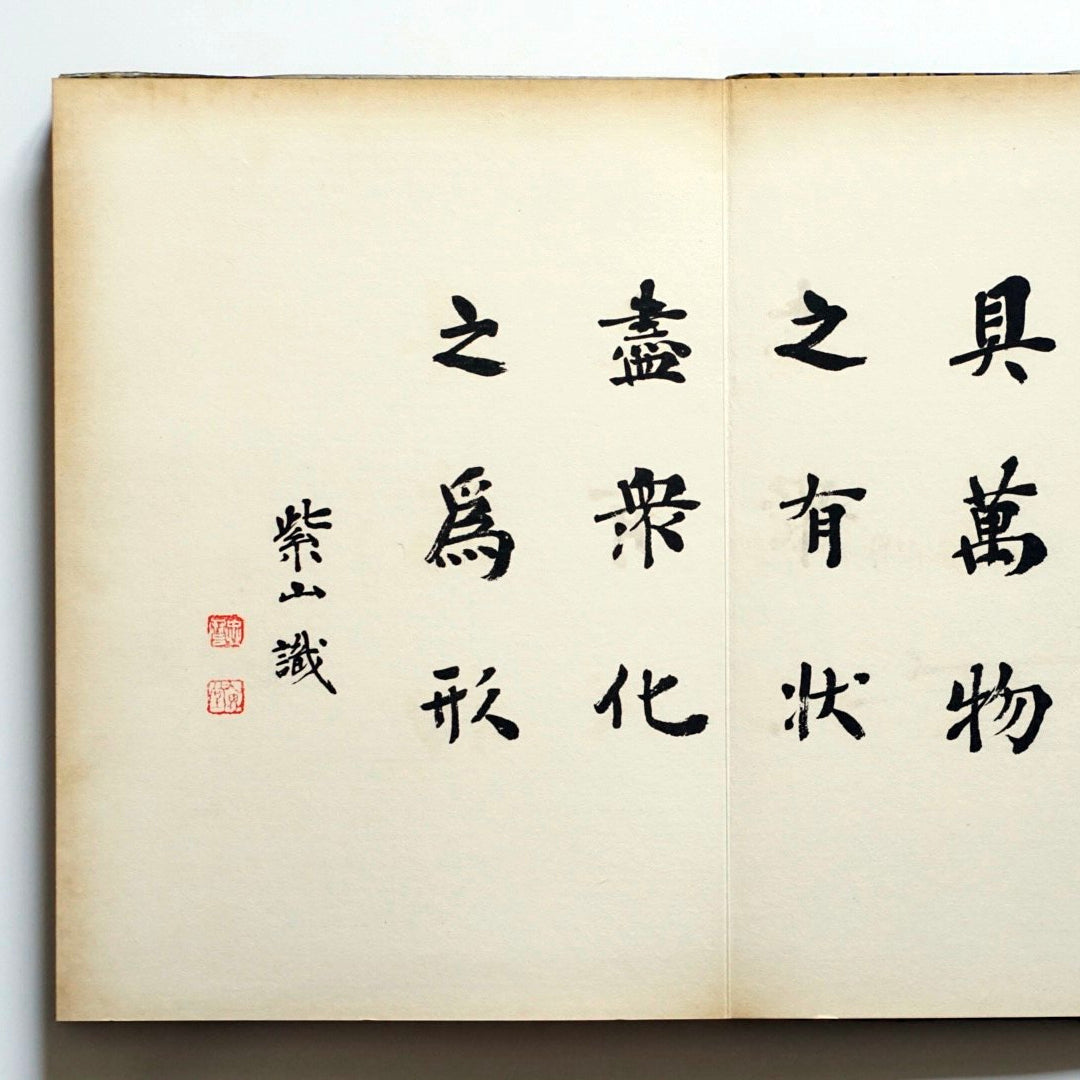 具萬物
之有状
盡衆化
之爲形
紫山識